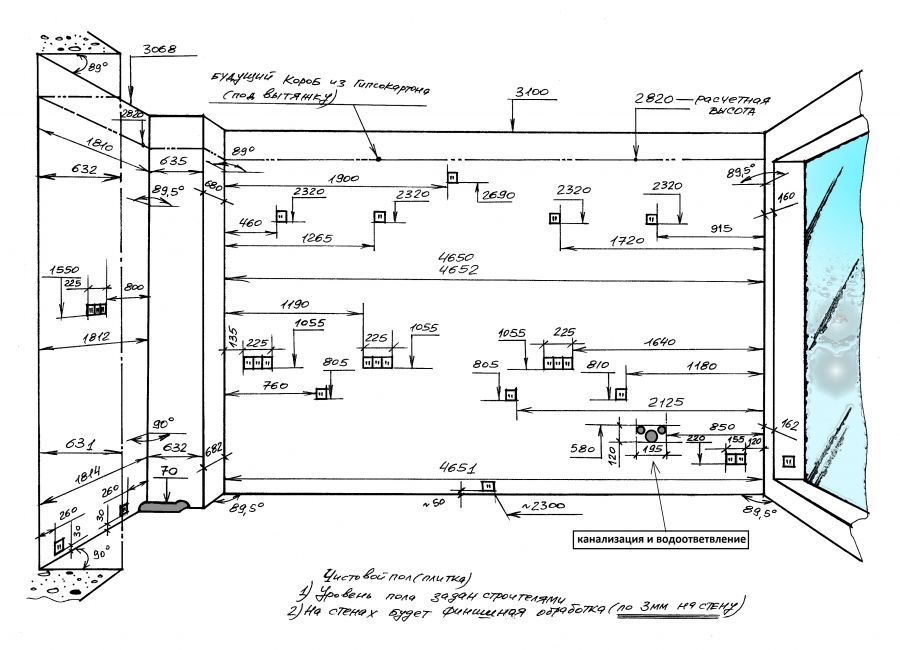 3068
89°
БУДУЩИЙ КОРОБ ИЗ ГИПСОКАРТОНА
(ПОД ВЫТЯЖКУ)
3100
2820 — РАСЧЕТНАЯ
ВЫСОТА
2820
1810
632
635
89°
680
89,5°
1900
2690
89,5°
160
2320
2320
2320
2320
460
1265
1720
915
4650
4652
1550
225
800
1190
135
225
1055
225
1055
1055
225
1640
1812
760
805
805
810
1180
2125
90°
631
632
682
580
120
195
850
220
155
120
162
1814
70
4651
260
260
30
30
90°
89,5°
~50
~2300
89,5°
канализация и водоответвление
Чистовой пол (плитка)
1) Уровень пола задан строителями
2) На стенах будет финишная обработка (по 3мм на стену)